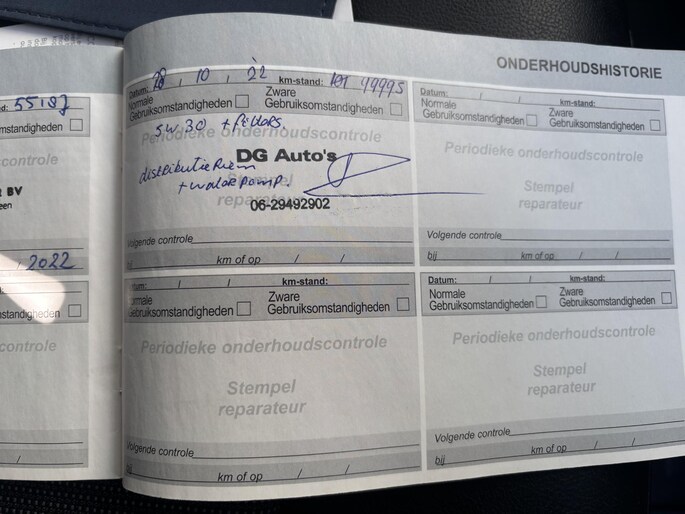 ONDERHOUDSHISTORIE
55187
omstandigheden
scontrole
BV
2022
standigheden
controle
Datum: 28, 10, 22 km-stand: km 99995
Normale Gebruiksomstandigheden
Zware Gebruiksomstandigheden
5W30 + filters
Periodieke onderhoudscontrole
DG Auto's
distributie Riem
+ waterpomp.
Stempel
reparateur
06-29492902
Volgende controle
bij km of op / /
Datum: / / km-stand:
Normale Gebruiksomstandigheden
Zware Gebruiksomstandigheden
Periodieke onderhoudscontrole
Stempel
reparateur
Volgende controle
bij km of op / /
Datum: / / km-stand:
male
Gebruiksomstandigheden
Zware
Gebruiksomstandigheden
Periodieke onderhoudscontrole
Stempel
reparateur
Volgende controle
km of op / /
Datum: / / km-stand:
Normale
Gebruiksomstandigheden
Zware
Gebruiksomstandigheden
Periodieke onderhoudscontrole
Stempel
reparateur
Volgende controle
bij km of op / /